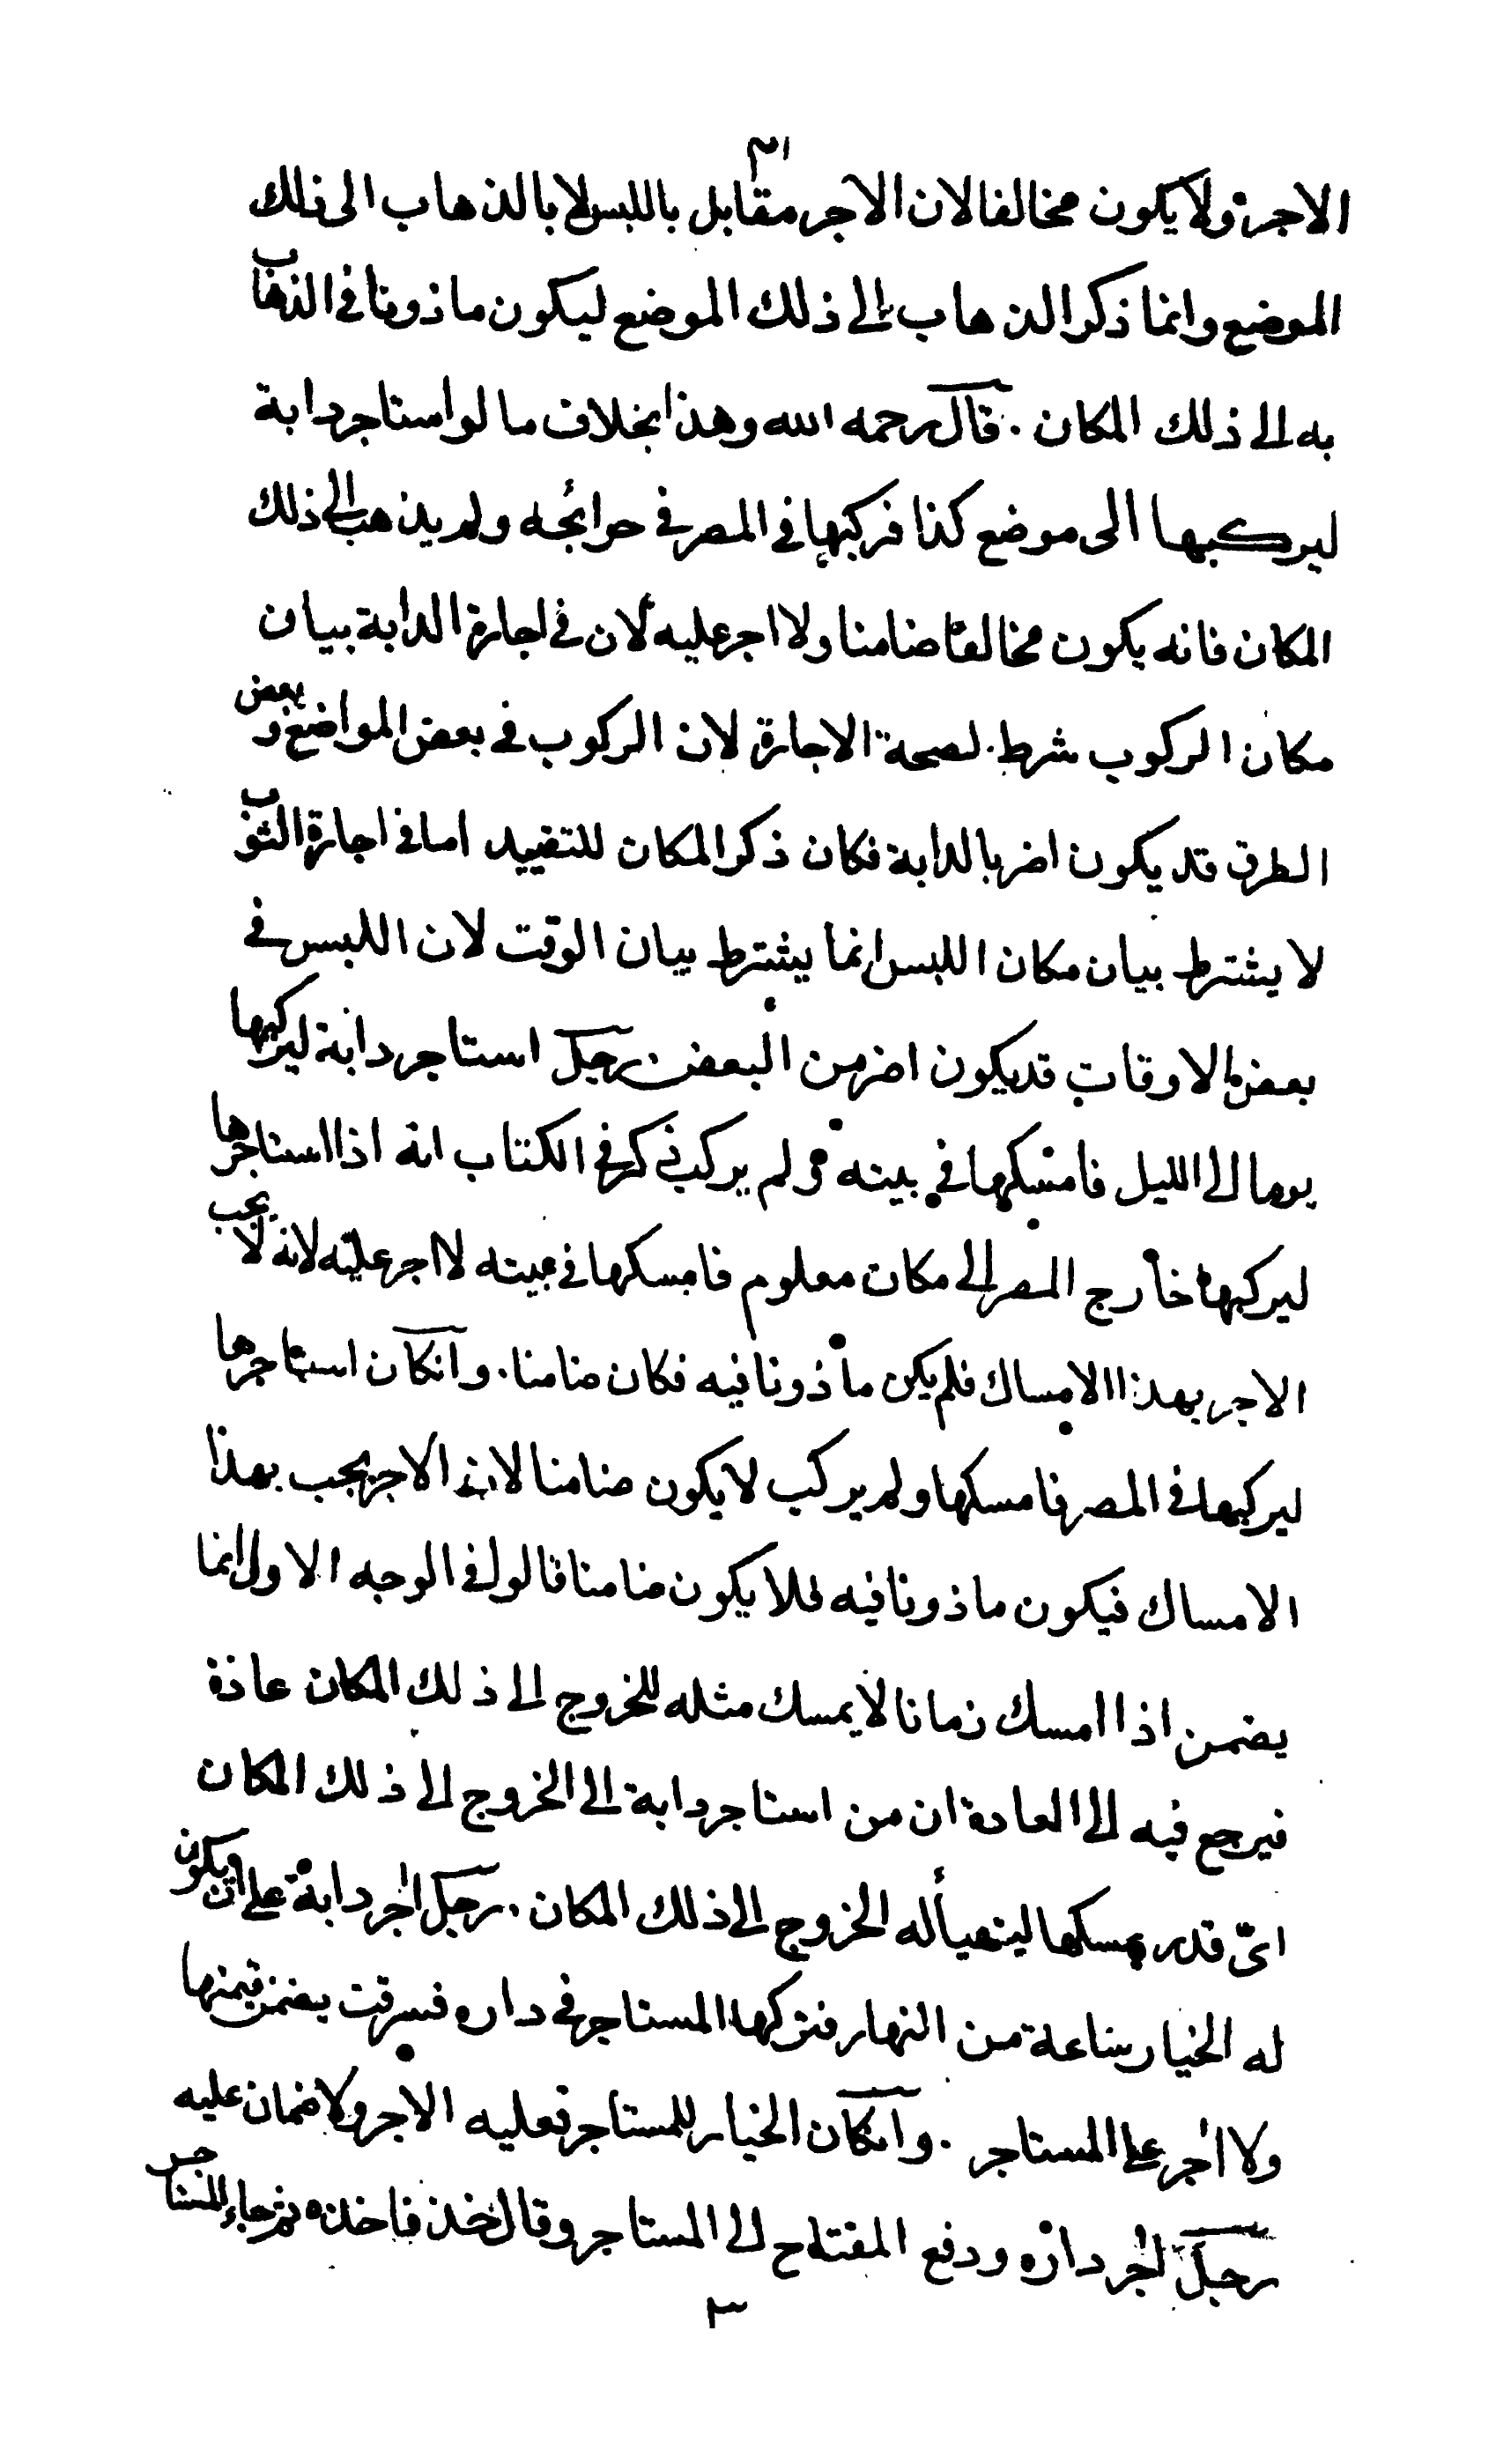 ٣١
الاجرة ولا يكون مخالفا لان الاجر مقابل باللبس لا بالذهاب الى ذلك
الموضع وانما ذكر الذهاب الى ذلك الموضع ليكون ماذونا فى الذهاب
به الى ذلك المكان . قال رحمه الله وهذا بخلاف ما لو استاجر دابة
ليركبها الى موضع كذا فركبها فى المصر فى حوائجه ولم يذهب الى ذلك
المكان فانه يكون مخالفا ضامنا ولا اجر عليه لان فى اجارة الدابة بيان
مكان الركوب شرط لصحة الاجارة لان الركوب فى بعض المواضع و بعض
الطرق قد يكون اضر بالدابة فكان ذكر المكان للتقييد اما فى اجارة الثوب
لا يشترط بيان مكان اللبس انما يشترط بيان الوقت لان اللبس فى
بعض الاوقات قد يكون اضر من البعض . رجل استاجر دابة ليركبها
يوما الى الليل فامسكها فى بيته ولم يركب ذكر فى الكتاب انه اذا استاجرها
ليركبها خارج المصر الى مكان معلوم فامسكها فى بيته لا اجر عليه لانه لا يجب
الاجر بهذا الامساك فلم يكن ماذونا فيه فكان ضامنا . وانكان استاجرها
ليركبها فى المصر فامسكها ولم يركب لا يكون ضامنا لان الاجر يجب بهذا
الامساك فيكون ماذونا فيه فلا يكون ضامنا قالوا فى الوجه الاول انما
يضمن اذا امسك زمانا لا يمسك مثله للخروج الى ذلك المكان عادة
فيرجع فيه الى العادة ان من استاجر دابة الى الخروج الى ذلك المكان
اىّ قدر يمسكها ليتهيأ له الخروج الى ذلك المكان . رجل اجر دابة على ان يكون
له الخيار ساعة من النهار فتركها المستاجر فى داره فسرقت يضمن قيمتها
ولا اجر على المستاجر . وانكان الخيار للمستاجر فعليه الاجر ولا ضمان عليه
رجل اجر داره ودفع المفتاح الى المستاجر وقال خذ فاخذه ثم جاء المستاجر
٣